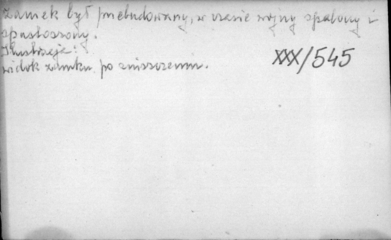 zamek był przebudowany, w czasie wojny spalony i
spustoszony.
Ilustracje:
widok zamku po zniszczeniu.
XXX/545